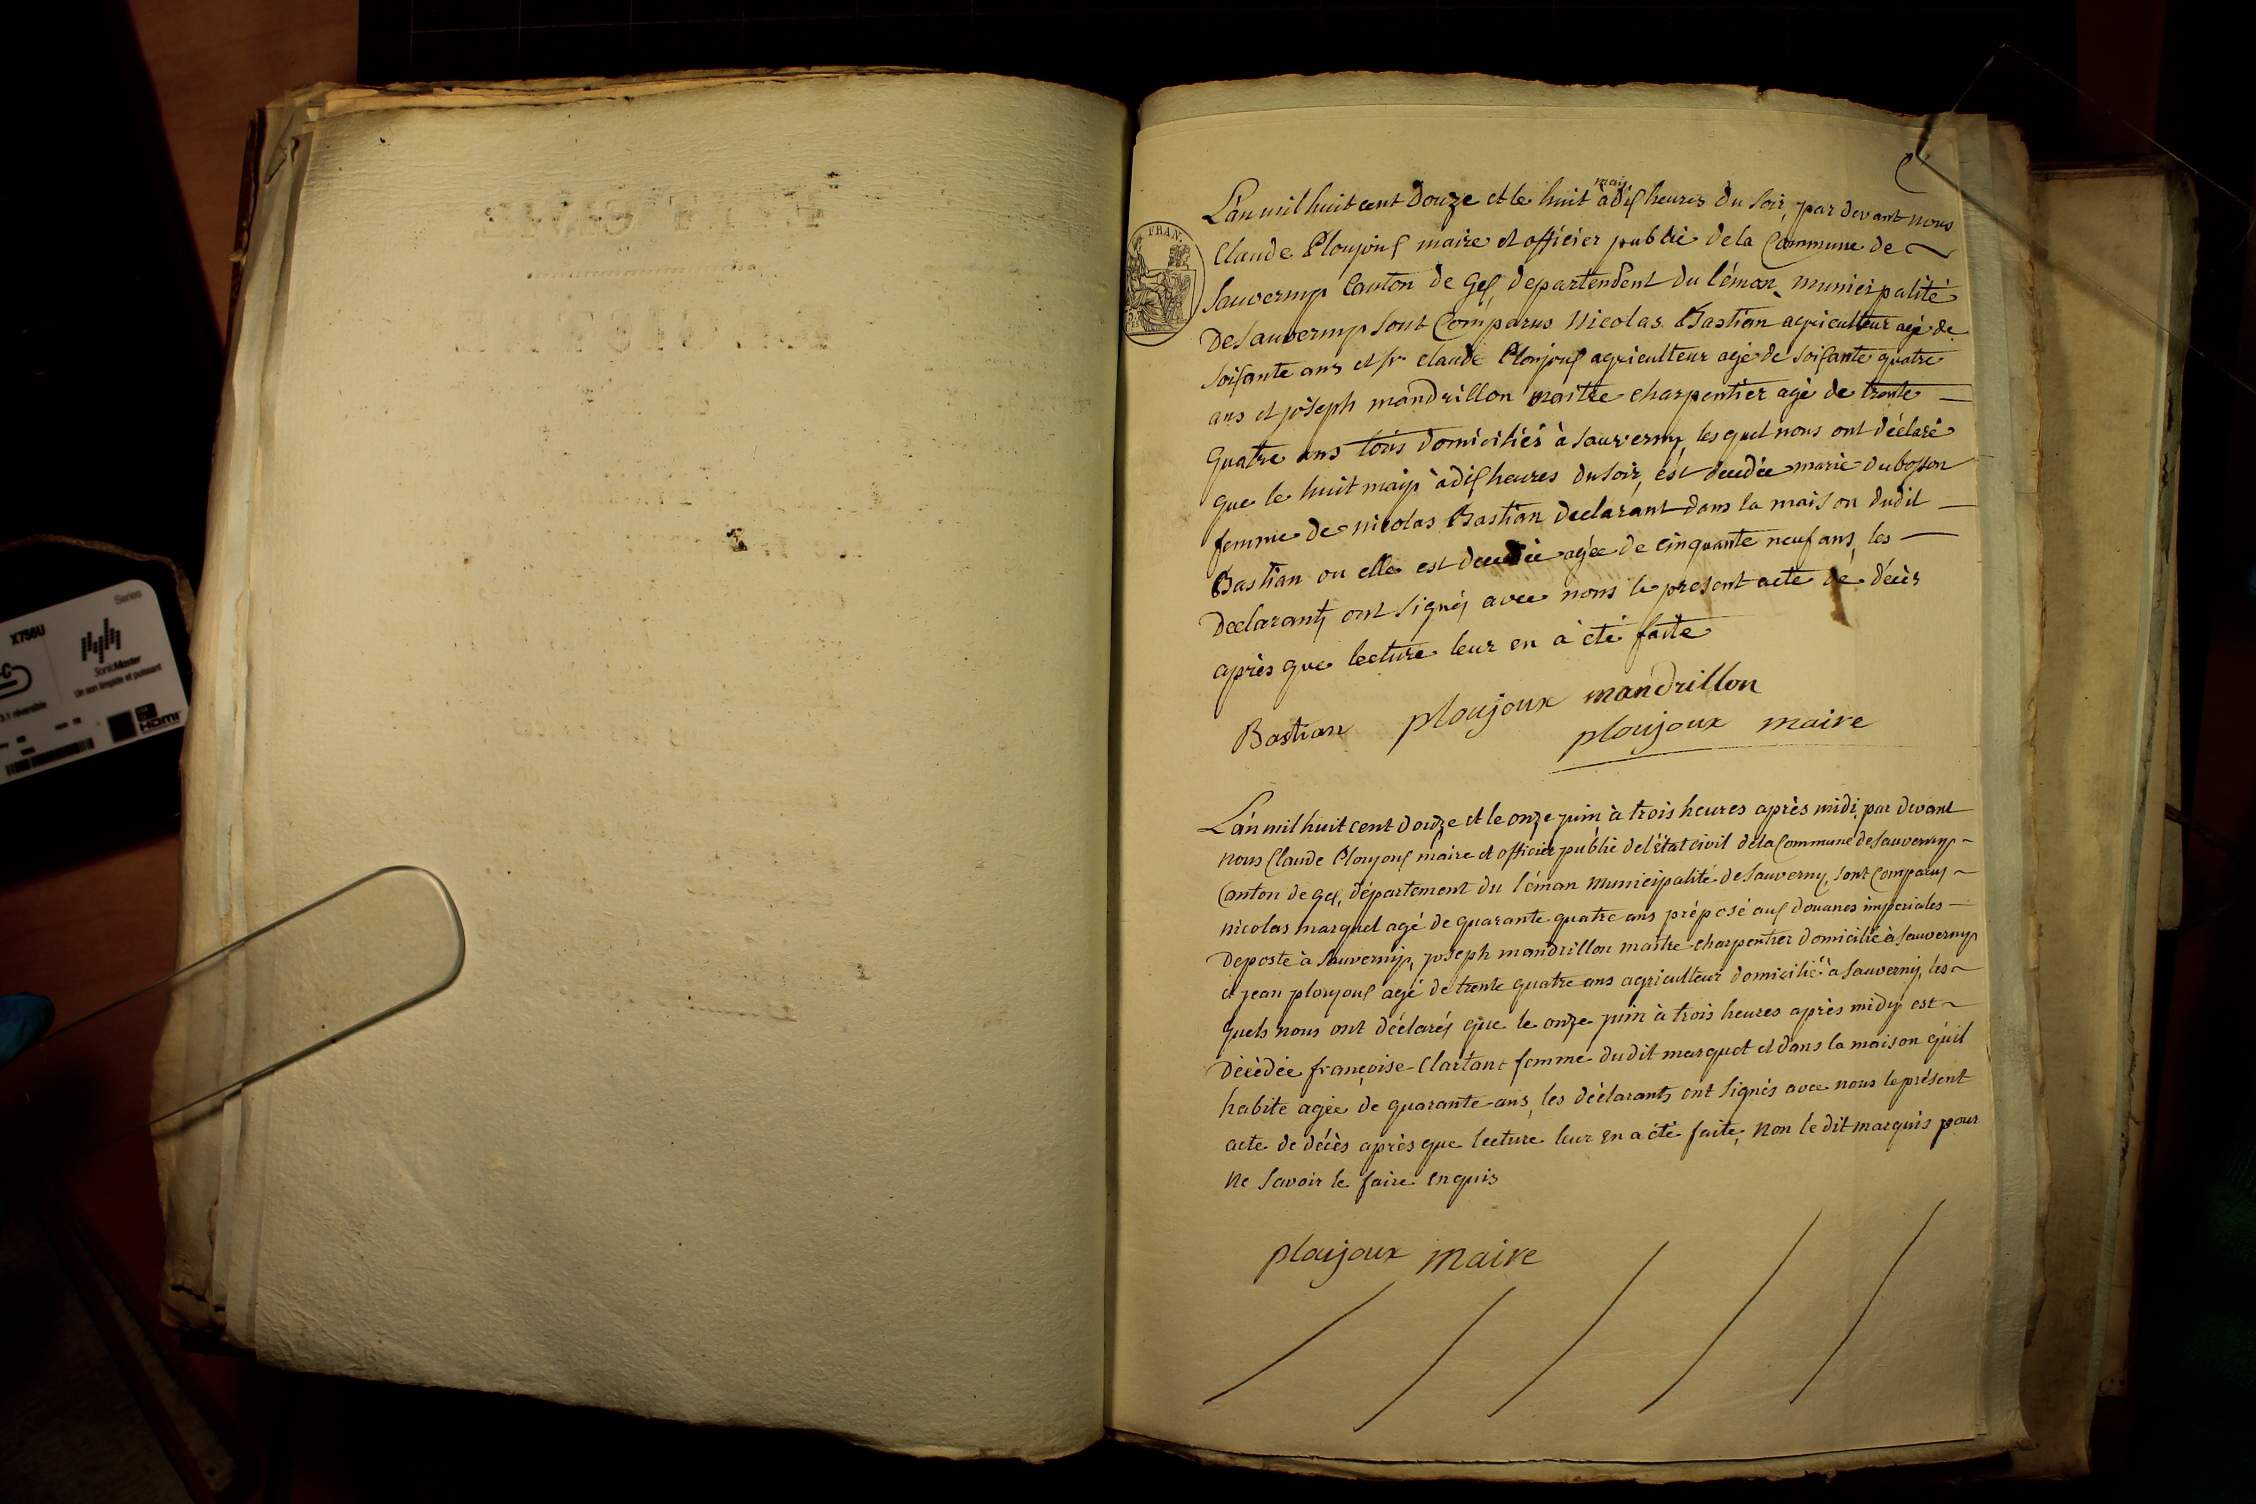 Series
X756U
SonicMaster
Un son limpide et puissant
HDMI
FRAN.
mai
L'an mil huit cent Douze et le huit à dix heures du soir, par devant nous
Claude Ploujoux maire et officier public de la Commune de
Sauverny Canton de Gex, departement du léman, municipalité
De Sauverny sont Comparus Nicolas Bastian agriculteur agé de
soixante ans et sr claude Ploujoux agriculteur agé de soixante quatre
ans et joseph mandrillon maitre charpentier agé de trente
quatre ans tous domiciliés à Sauverny, les quel nous ont déclaré
que le huit maiy à dix heures du soir, est decedée marie dubosson
femme de nicolas Bastian declarant dans la maison dudit
Bastian ou elle est decedée agée de cinquante neuf ans, les
Declarants ont signés avec nous le present acte de décès
après que lecture leur en a été faite
Bastian ploujoux mandrillon
ploujoux maire
L'an mil huit cent douze et le onze juin à trois heures après midi, par devant
nous Claude Ploujoux maire et officier public de l'état civil de la Commune de Sauverny
Canton de gex, département du léman municipalité de Sauverny, sont Comparus
nicolas marquet agé de quarante quatre ans préposé aux douanes imperiales
de poste à Sauverny, joseph mandrillon maitre charpentier domicilié à Sauverny
et jean ploujoux agé de trente quatre ans agriculteur domicilié à Sauverny, les
quels nous ont déclarés que le onze juin à trois heures après midy est
Décédée françoise Clartant femme dudit marquet et dans la maison qu'il
habite agée de quarante ans, les déclarants ont signés avec nous le présent
acte de décès après que lecture leur en a été faite, non le dit marquis pour
ne savoir le faire enquis
ploujoux maire